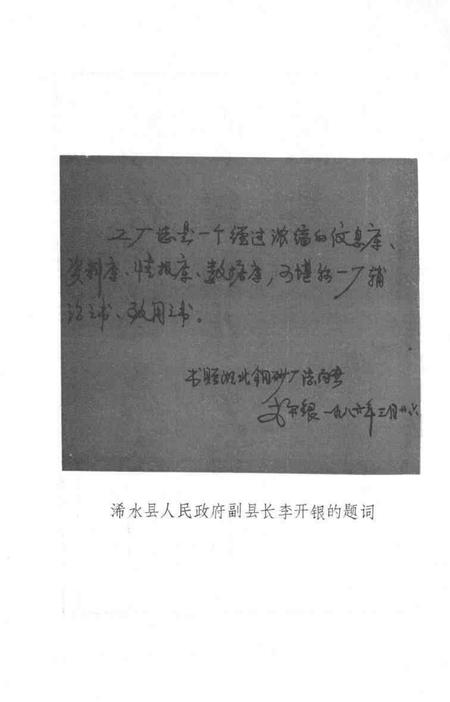 工厂志是一个经过浓缩的信息库、
资料库、情报库、数据库，可堪称一厂辅
治之书、致用之书。
书赠湖北钢砂厂志
李开银 一九八六年三月廿六
浠水县人民政府副县长李开银的题词